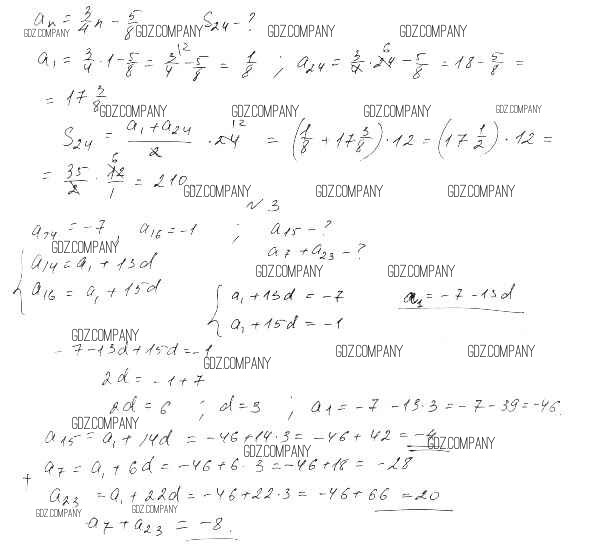 aₙ = 3/4 n − 5/8    S₂₄ − ?
GDZ.COMPANY GDZ.COMPANY GDZ.COMPANY GDZ.COMPANY
a₁ = 3/4 · 1 − 5/8 = 3/4 − 5/8 = 1/8 ; a₂₄ = 3/4 · 24 6 − 5/8 = 18 − 5/8 =
= 17 3/8
GDZ.COMPANY GDZ.COMPANY GDZ.COMPANY GDZ.COMPANY
S₂₄ = (a₁ + a₂₄)/2 · 24 12 = (1/8 + 17 3/8) · 12 = (17 1/2) · 12 =
= 35/2 · 12/1 6 = 210
GDZ.COMPANY GDZ.COMPANY GDZ.COMPANY
№ 3
a₁₄ = −7, a₁₆ = −1 ; a₁₅ − ?
GDZ.COMPANY a₇ + a₂₃ − ?
a₁₄ = a₁ + 13d
GDZ.COMPANY GDZ.COMPANY
a₁₆ = a₁ + 15d
{ a₁ + 13d = −7    a₁ = −7 − 13d
a₁ + 15d = −1
GDZ.COMPANY
−7 − 13d + 15d = −1
GDZ.COMPANY GDZ.COMPANY GDZ.COMPANY
2d = −1 + 7
2d = 6 ; d = 3 ; a₁ = −7 − 13·3 = −7 − 39 = −46.
GDZ.COMPANY
a₁₅ = a₁ + 14d = −46 + 14·3 = −46 + 42 = −4
GDZ.COMPANY GDZ.COMPANY
a₇ = a₁ + 6d = −46 + 6·3 = −46 + 18 = −28
+ a₂₃ = a₁ + 22d = −46 + 22·3 = −46 + 66 = 20
GDZ.COMPANY GDZ.COMPANY
a₇ + a₂₃ = −8.